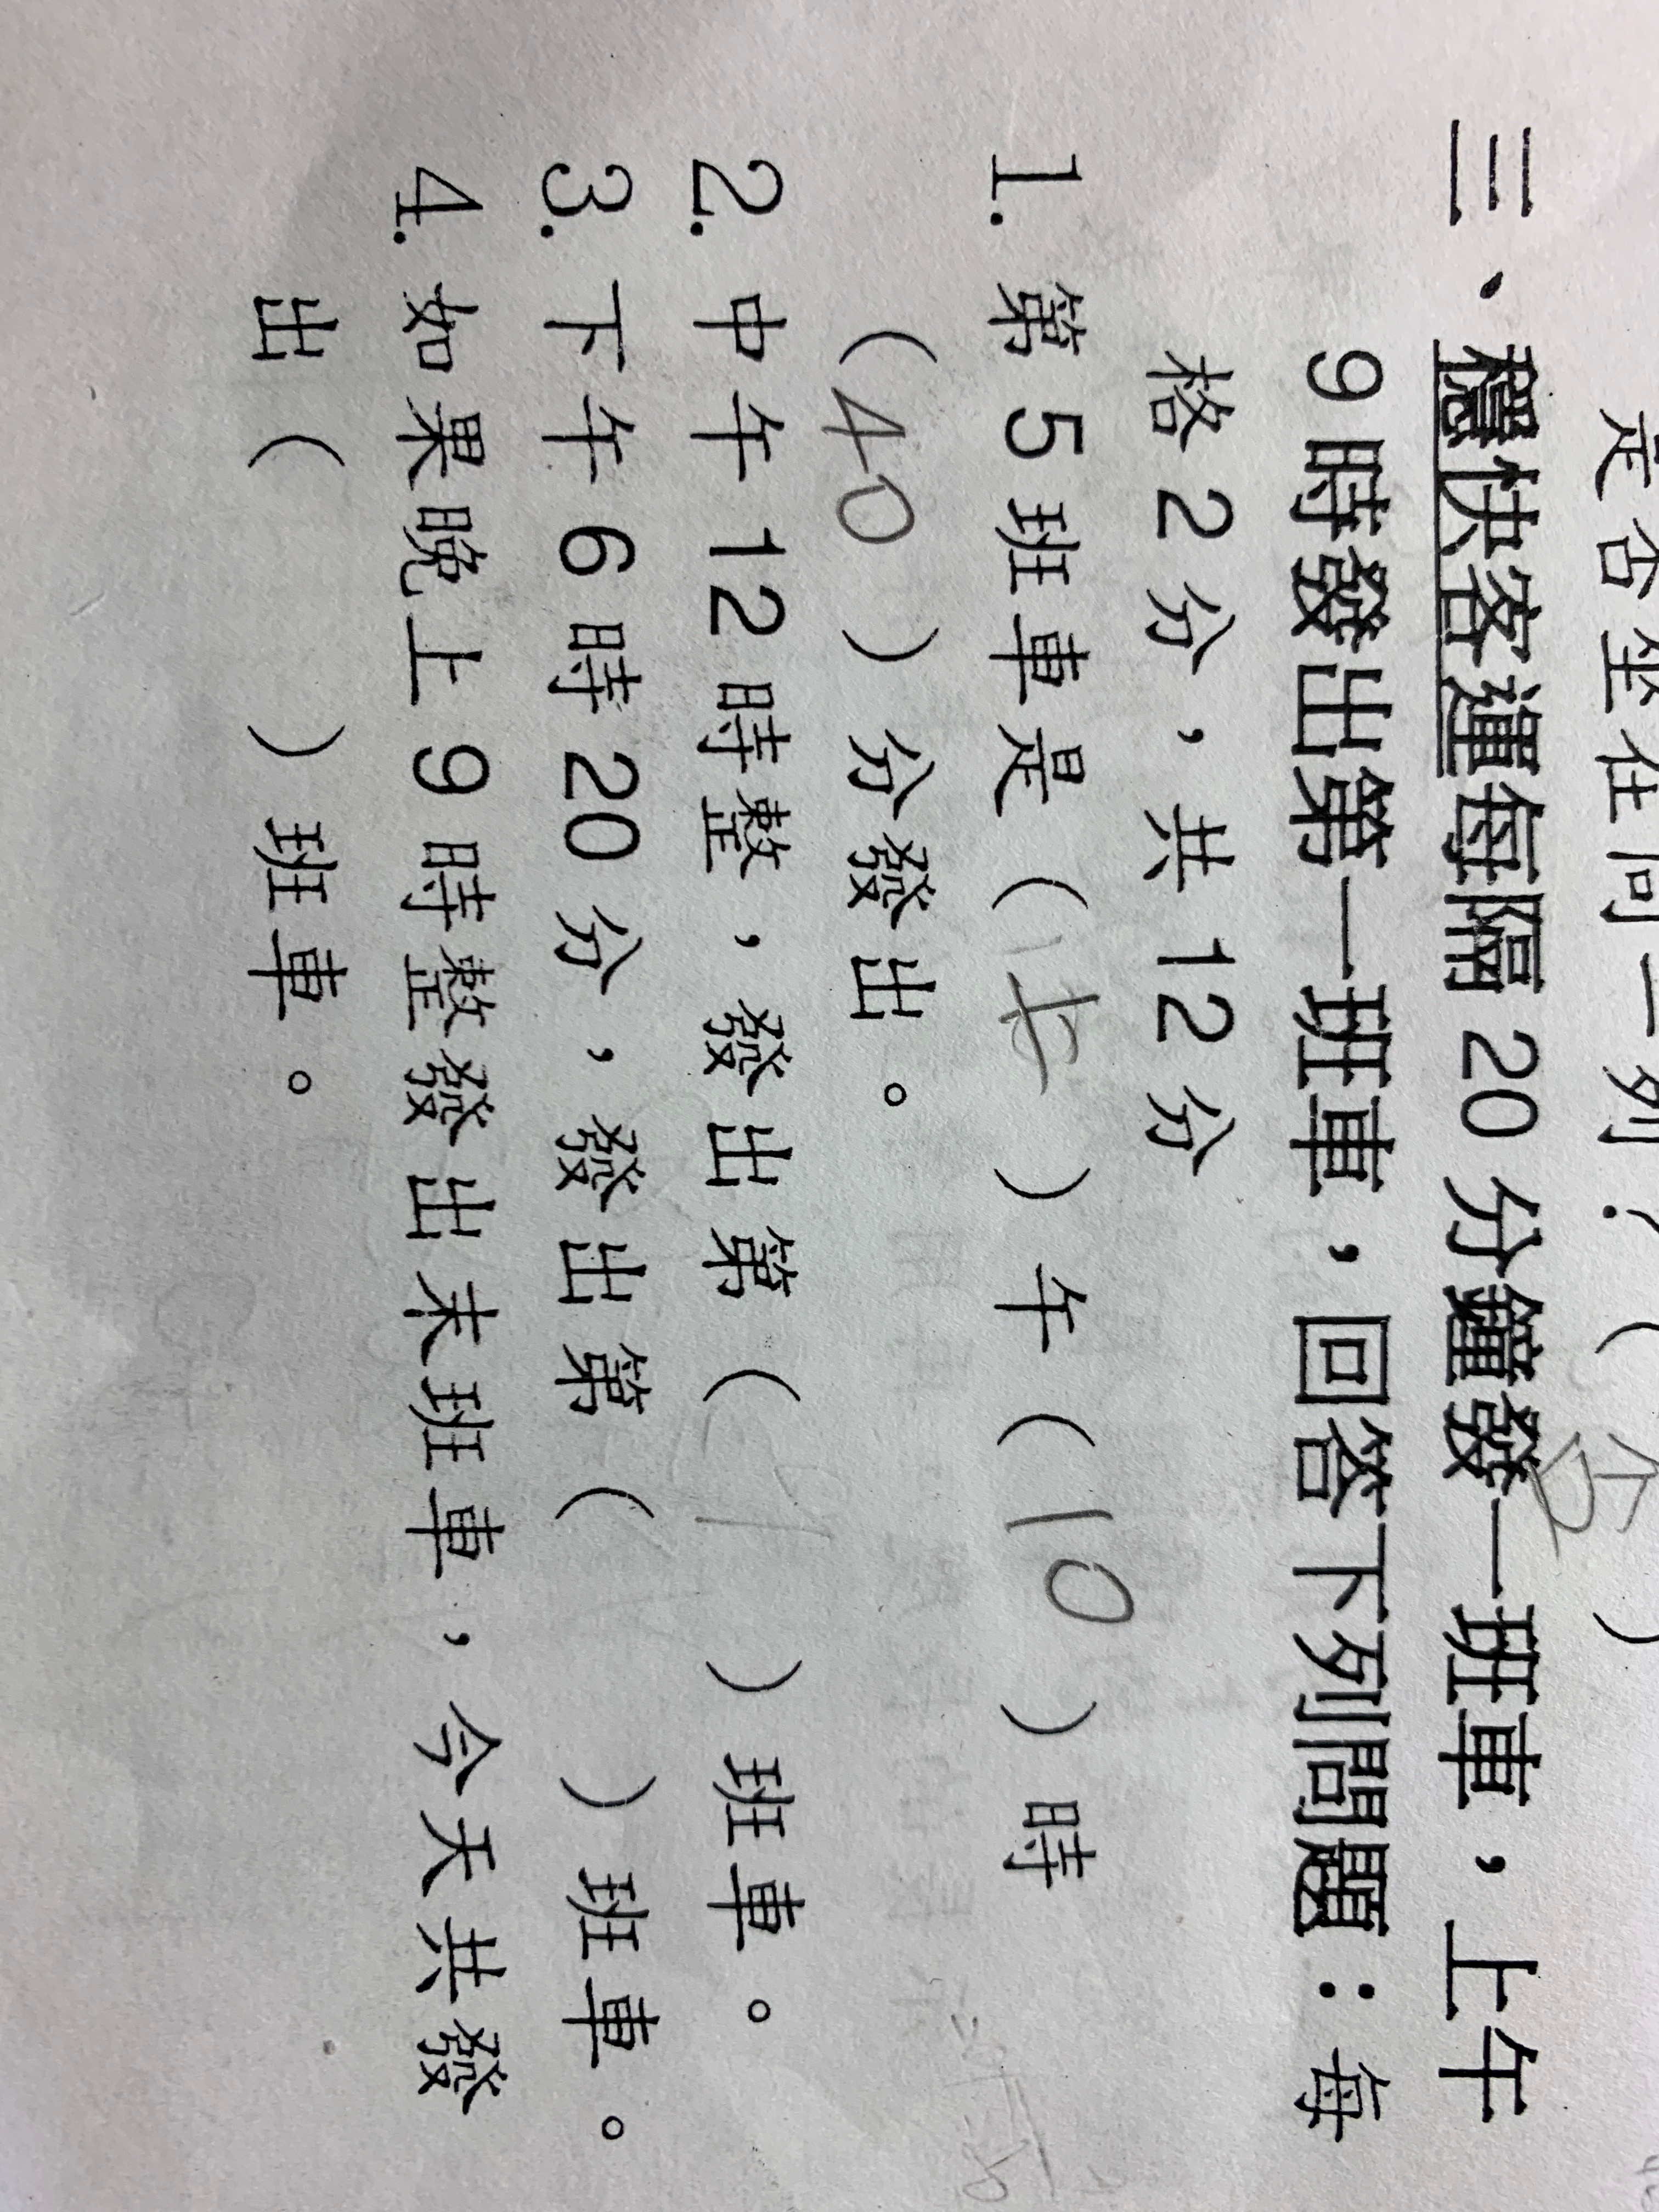 是否坐在同一列？（ 否 ）
三、穩快客運每隔 20 分鐘發一班車，上午
9 時發出第一班車，回答下列問題：每
格 2 分，共 12 分
1. 第 5 班車是（ 上 ）午（ 10 ）時
（ 40 ）分發出。
2. 中午 12 時整，發出第（ ）班車。
3. 下午 6 時 20 分，發出第（ ）班車。
4. 如果晚上 9 時整發出末班車，今天共發
出（ ）班車。